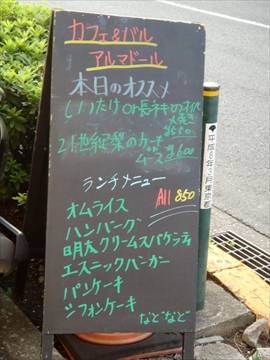 カフェ&バル
アルマドール
本日のオススメ
しいたけor長ネギのオイル
メ焼き
¥550
21世紀梨のケーキ
or
ムース
¥600
ランチメニュー
All 850
オムライス
ハンバーグ
明太クリームスパゲッティ
エスニックバーガー
パンケーキ
シフォンケーキ
など など
平成8年3月東京都